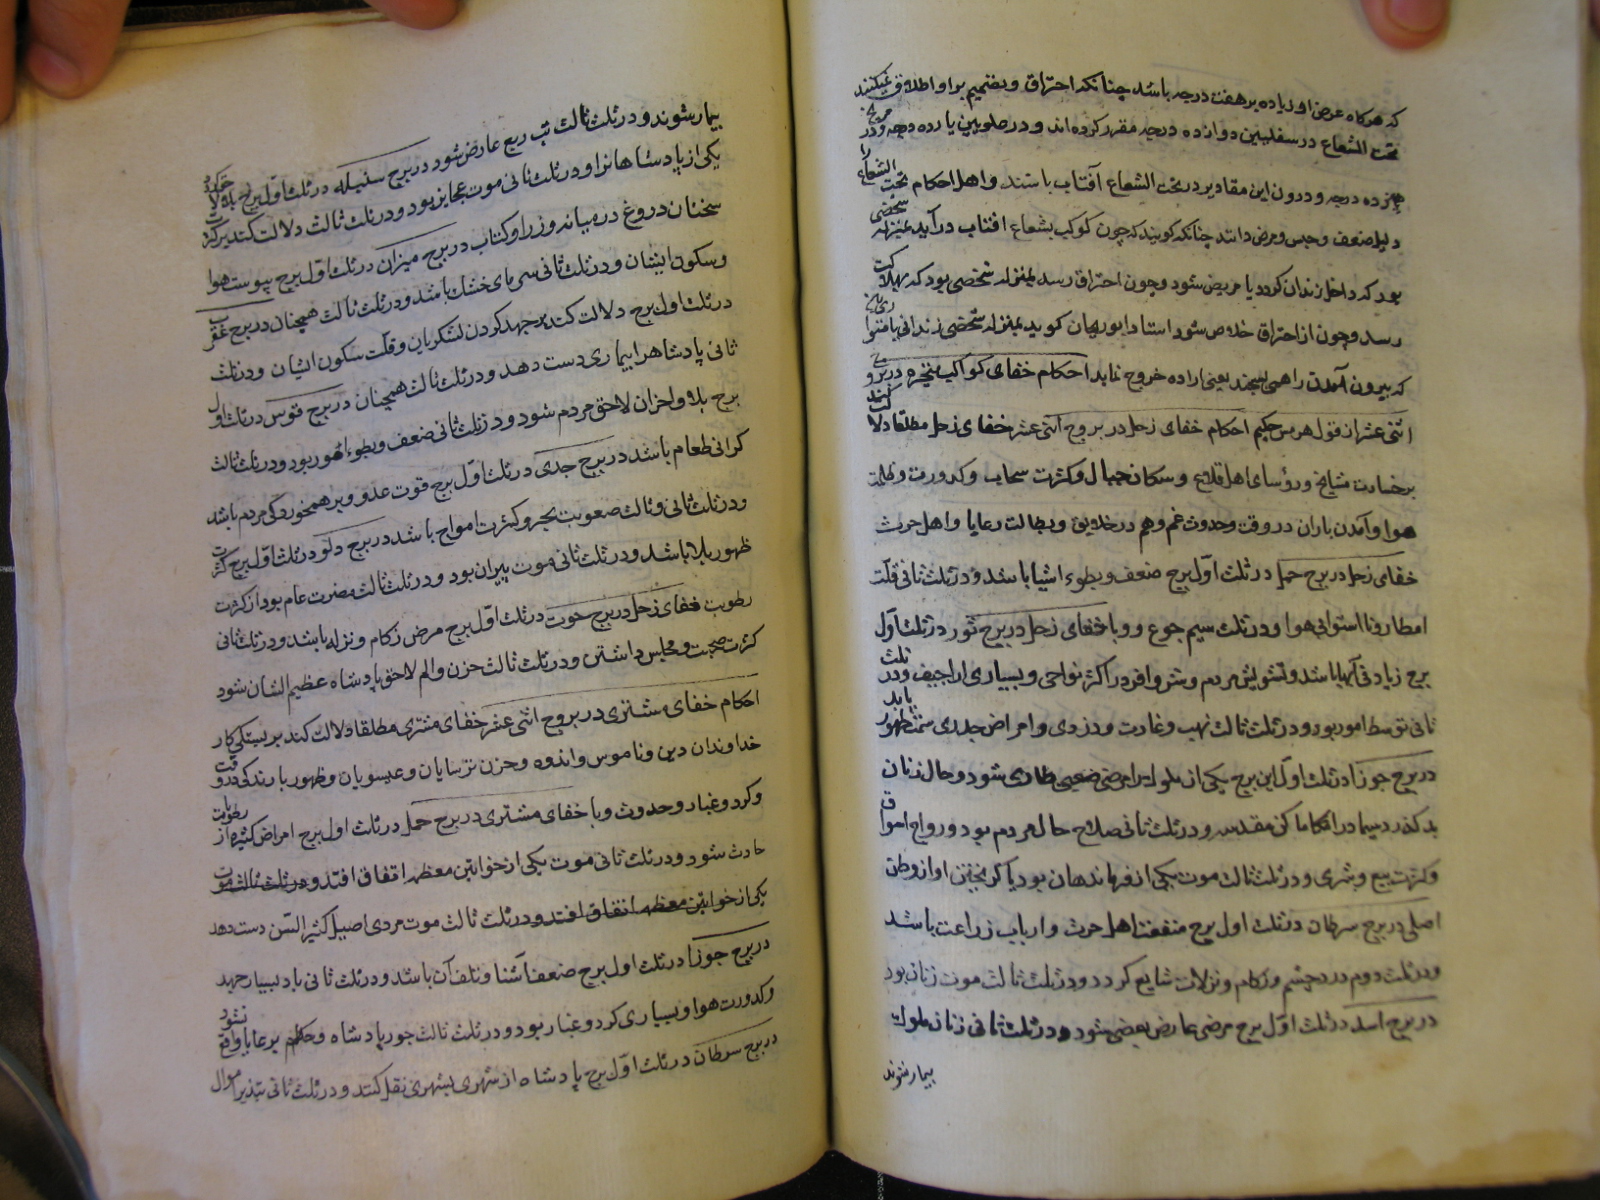 که هرکاه عرض او زیاده بر هفت درجه باشد چنانکه احتراق و تصمیم بر او اطلاق نمیکنند
تحت الشعاع در سفلیین دوازده درجه مقرر کرده‌اند و در علویین پازده درجه و در مریخ
هژده درجه و درون این مقادیر در تحت الشعاع آفتاب باشند و اهل احکام تحت الشعاع را
دلیل ضعف و حبس و مرض دانند چنانکه کویند که چون کوکب بشعاع افتاب در آید بمنزله شخصی
بود که داخل زندان کردد یا مریض شود و چون احتراق رسد بمنزله شخصی بود که بهلاکت
رسد و چون از احتراق خلاص شود استاد ابوریحان کوید بمنزله شخصی زندانی
که بیرون آمدن را همی بسیجد یعنی اراده خروج نماید احکام خفای کواکب متحیره در بروج
اثنی عشر از قول هرمس حکیم احکام خفای زحل در بروج اثنی عشر خفای زحل مطلقا دلالت کند
بر خسارت مشایخ و رؤسای اهل قلاع و سکان جبال و کثرت سحاب و کدورت و ظلمت
هوا و آمدن باران در وقت و حدوث غم و هم در خلایق و بطالت رعایا و اهل حرث
خفای زحل در برج حمل در ثلث اول برج ضعف و بطوء اشیا باشد و در ثلث ثانی قلت
امطار و نااستوائی هوا و در ثلث سیم جوع و وبا خفای زحل در برج ثور در ثلث اول
برج زیادتی آبها باشد و تشویش مردم و شر و افر در اکثر نواحی و بسیاری اراجیف و در ثلث
ثانی توسط امور بود و در ثلث ثالث نهب و غارت و دزدی و امراض جلدی سمت ظهور یابد
در برج جوزا در ثلث اول این برج یکی از ملوک را مرضی صعبی طاری شود و حال زنان
بد کذرد سیما در اماکن مقدسه و در ثلث ثانی صلاح حال مردم بود و رواج اسواق
و کثرت بیع و شری و در ثلث ثالث موت یکی از فرماندهان بود یا کریختن او از وطن
اصلی در برج سرطان در ثلث اول برج منفعت اهل حرث و ارباب زراعت باشد
و در ثلث دوم درد چشم و زکام و نزلات شایع کردد و در ثلث ثالث موت زنان بود
در برج اسد در ثلث اول برج مرضی عارض بعضی شود و در ثلث ثانی زنان ملوک
بیمار شوند
بیمار شوند و در ثلث ثالث تب ربع عارض شود در برج سنبله در ثلث اول برج بلا لاحق کردد
یکی از پادشاهانرا و در ثلث ثانی موت عجایز بود و در ثلث ثالث دلالت کند بر کثرت
سخنان دروغ در میانه وزرا و کتاب در برج میزان در ثلث اول برج یبوست هوا
و سکون ایشان و در ثلث ثانی سرمای خشک باشد و در ثلث ثالث همچنان در برج عقرب
در ثلث اول برج دلالت کند بر جهد کردن لشکریان و قلت سکون ایشان و در ثلث
ثانی پادشاهرا بیماری دست دهد و در ثلث ثالث همچنان در برج قوس در ثلث اول
برج بلا و احزان لاحق مردم شود و در ثلث ثانی ضعف و بطوء امور بود و در ثلث ثالث
کرانی طعام باشد در برج جدی در ثلث اول برج قوت عدو و بر همخوردکی مردم باشد
و در ثلث ثانی و ثالث صعوبت بحر و کثرت امواج باشد در برج دلو در ثلث اول برج کثرت
ظهور بلا باشد و در ثلث ثانی موت پیران بود و در ثلث ثالث مضرت عام بود از کثرت
رطوبت خفای زحل در برج حوت در ثلث اول برج مرض زکام و نزله باشد و در ثلث ثانی
کثرت صحبت و مجلس داشتن و در ثلث ثالث حزن و الم لاحق پادشاه عظیم الشان شود
احکام خفای مشتری در بروج اثنی عشر خفای مشتری مطلقا دلالت کند بر بستکی کار
خداوندان دین و ناموس و اندوه و حزن ترسایان و عیسویان و ظهور بارندکی در وقت
و کرد و غبار و حدوث وبا خفای مشتری در برج حمل در ثلث اول برج امراض کثیره از رطوبات
حادث شود و در ثلث ثانی موت یکی از خواتین معظمه اتفاق افتد و در ثلث ثالث موت
یکی از خواتین معظمه اتفاق افتد و در ثلث ثالث موت مردی اصیل کثیر السن دست دهد
در برج جوزا در ثلث اول برج ضعف اشنا و تلف آن باشد و در ثلث ثانی باد بسیار جهد
و کدورت هوا و بسیاری کرد و غبار بود و در ثلث ثالث جور پادشاه و حکام بر رعایا واقع شود
در برج سرطان در ثلث اول برج پادشاه از شهری بشهری نقل کند و در ثلث ثانی تبذیر اموال